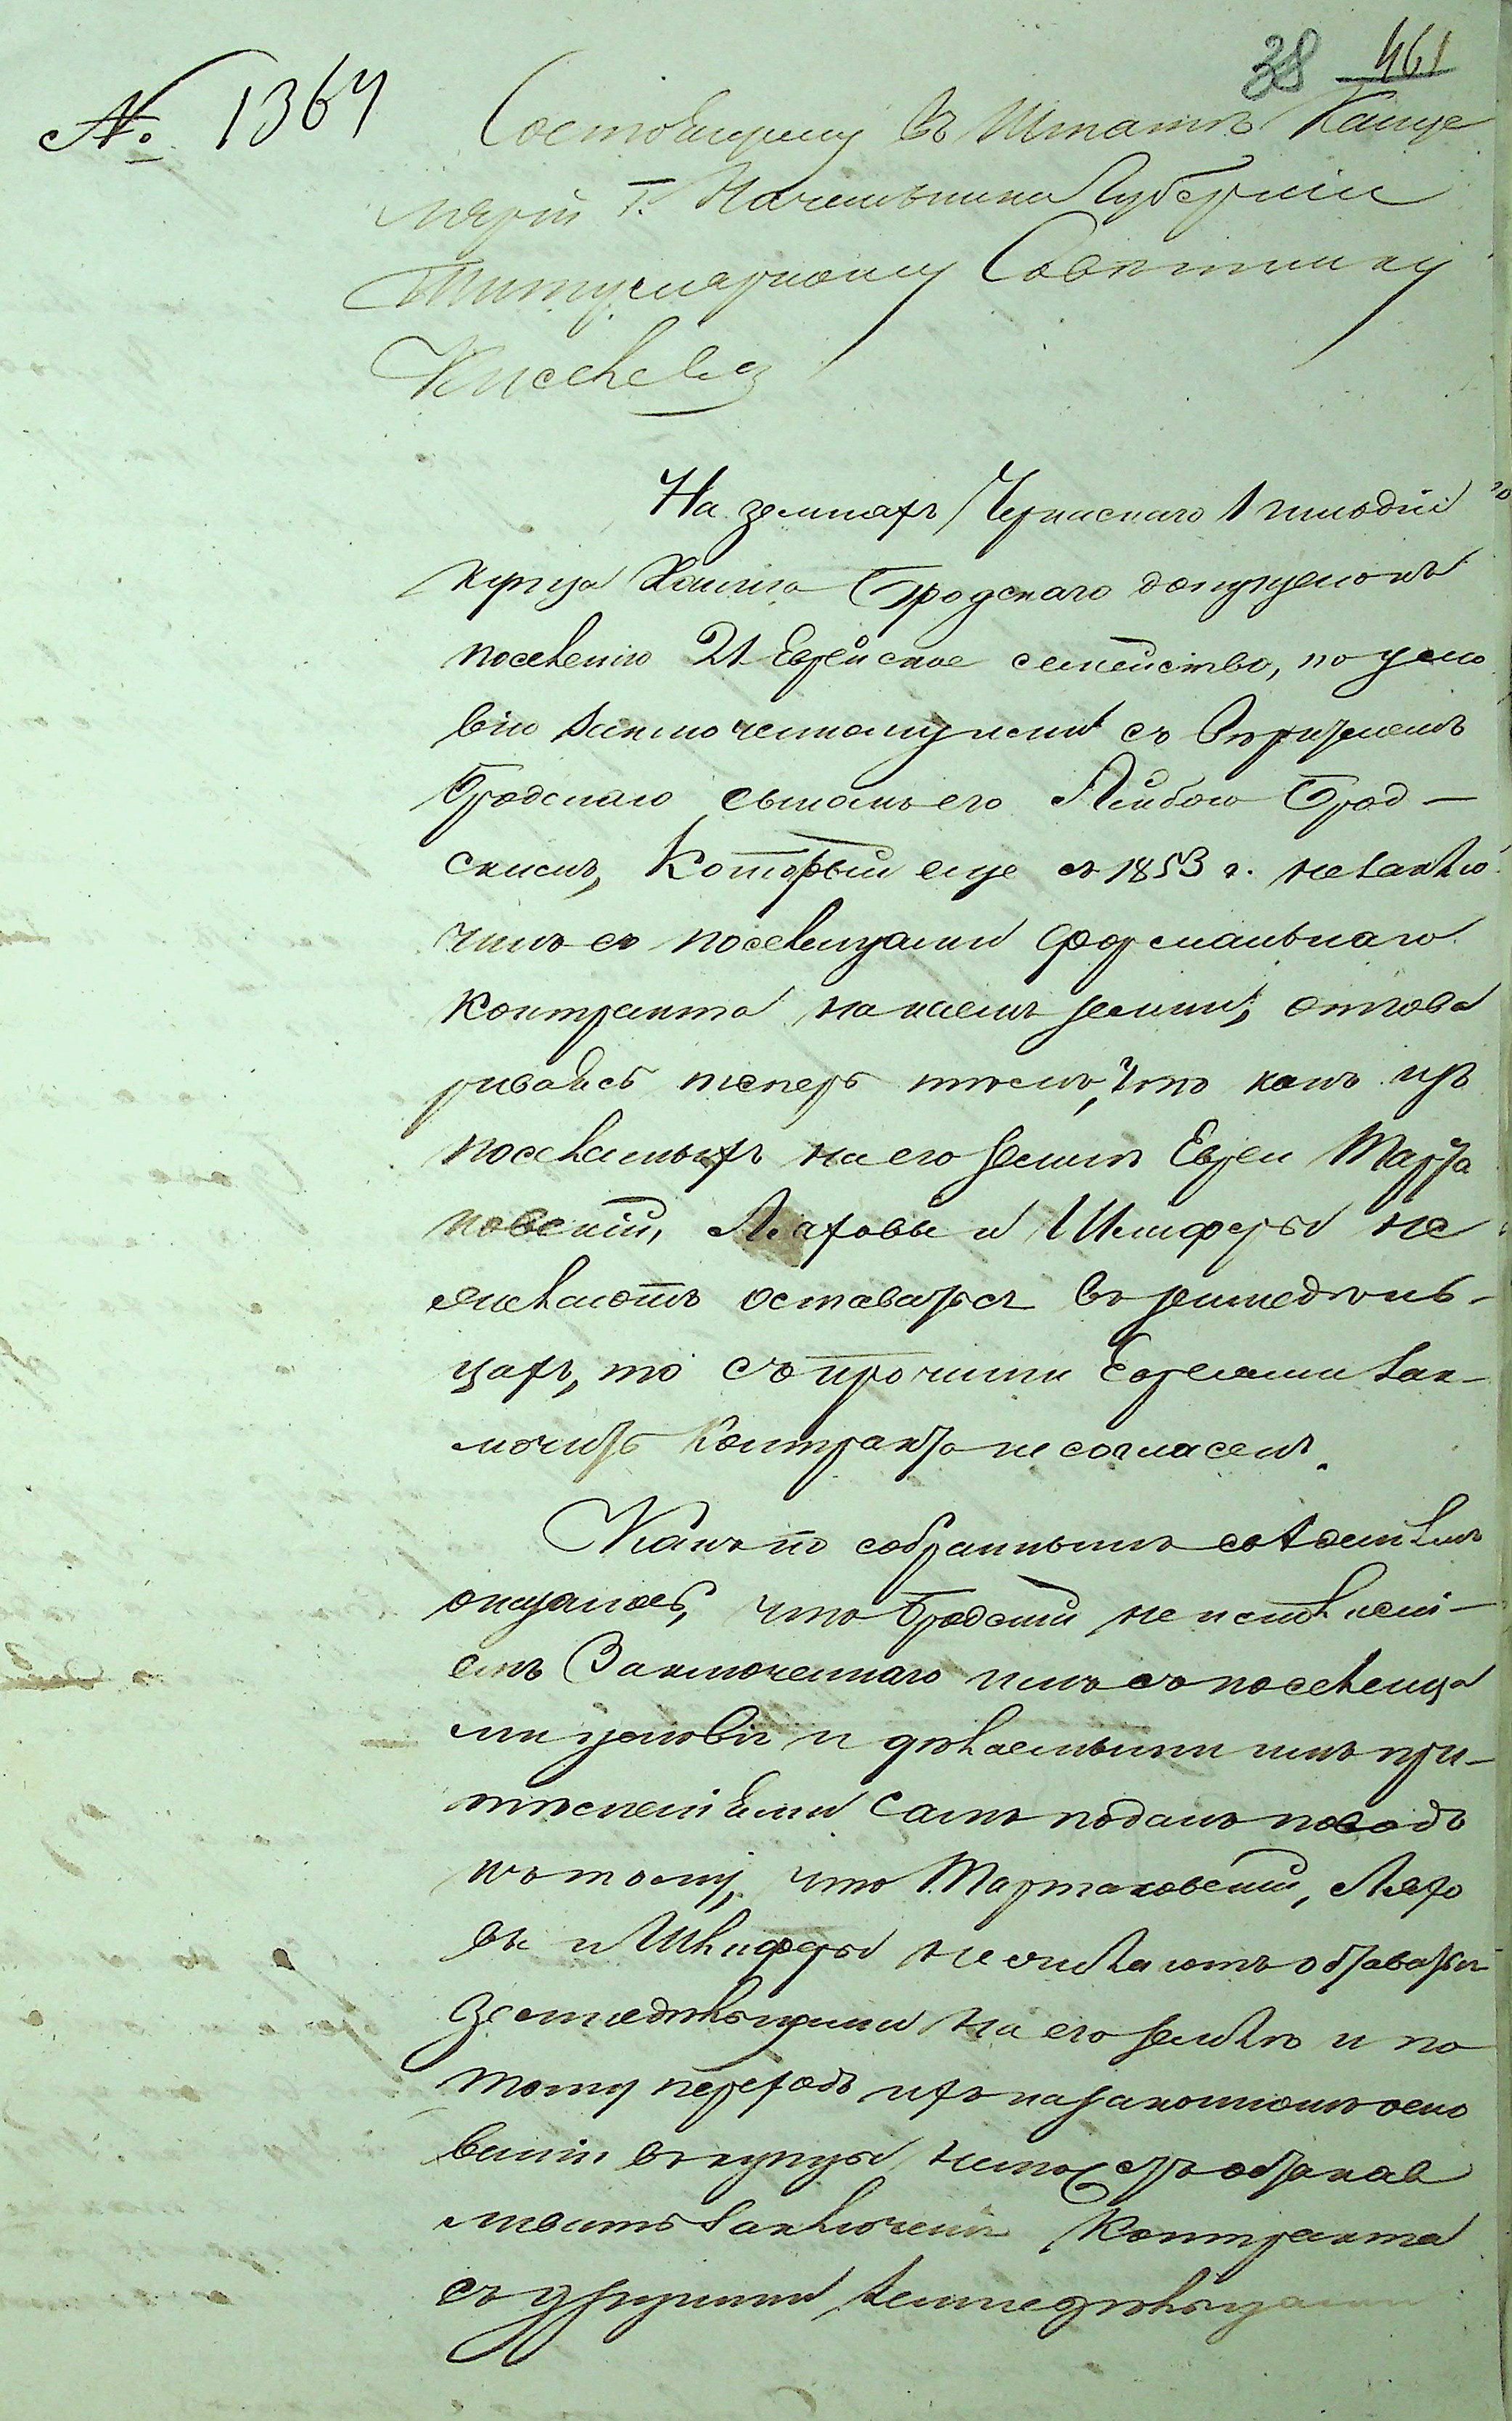 38 461
№ 1367
Состоящему въ Штатѣ Канце
лярій Г. Начальника Губерніи
Титулярному Совѣтнику
Киселеву
На земляхъ Черкаскаго 1 гильдіи
купца Хаима Бродскаго допущенокъ
поселенію 21 Еврейское семейство, по усло
вію заключенному ими съ довѣреннымъ
Бродскаго сыномъ его Лейбою Брод-
скимъ, который еще съ 1853 г. незаклю
чилъ съ поселенцами формальнаго
контракта на наемъ земли, отгова
риваясь теперь тѣмъ, что какъ изъ
поселенныхъ на его землѣ Евреи Марта
новскій, Ляховы и Шлиферы не
желаютъ оставаться въ земледѣль-
цахъ, то съ прочими Евреями зак-
лючить контракта не согласенъ.
Какъ по собраннымъ свѣденіямъ
оказалось, что Бродскій не исполняе-
етъ заключеннаго имъ съ поселенца
ми условія и дѣлаемыми имъ при-
тѣсненіями самъ подалъ поводъ
къ тому, что Мартановскій, Ляхо
вы и Шлиферы не желаютъ оставаться
земледѣльцами на его землѣ и по
тому переходъ ихъ на законномъ осно
ваніи въ купцы не можетъ останав
ливать заключенія контракта
съ другими земледѣльцами